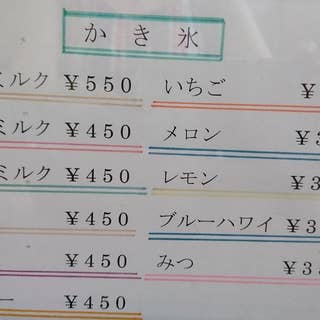 かき氷
ミルク ¥550
ミルク ¥450
ミルク ¥450
¥450
¥450
ー ¥450
いちご ¥
メロン ¥3
レモン ¥3
ブルーハワイ ¥3
みつ ¥35